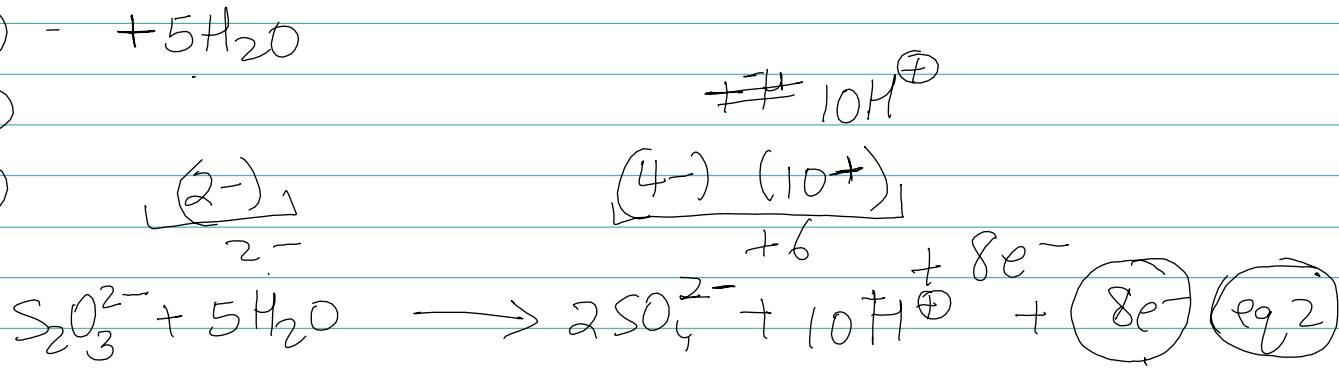 ) - +5H₂O
10H⊕
)
) (2-) (4-) (10+)
2- +6
+ 8e⁻
S₂O₃²⁻ + 5H₂O ⟶ 2SO₄²⁻ + 10H⊕ + 8e⁻ eq 2